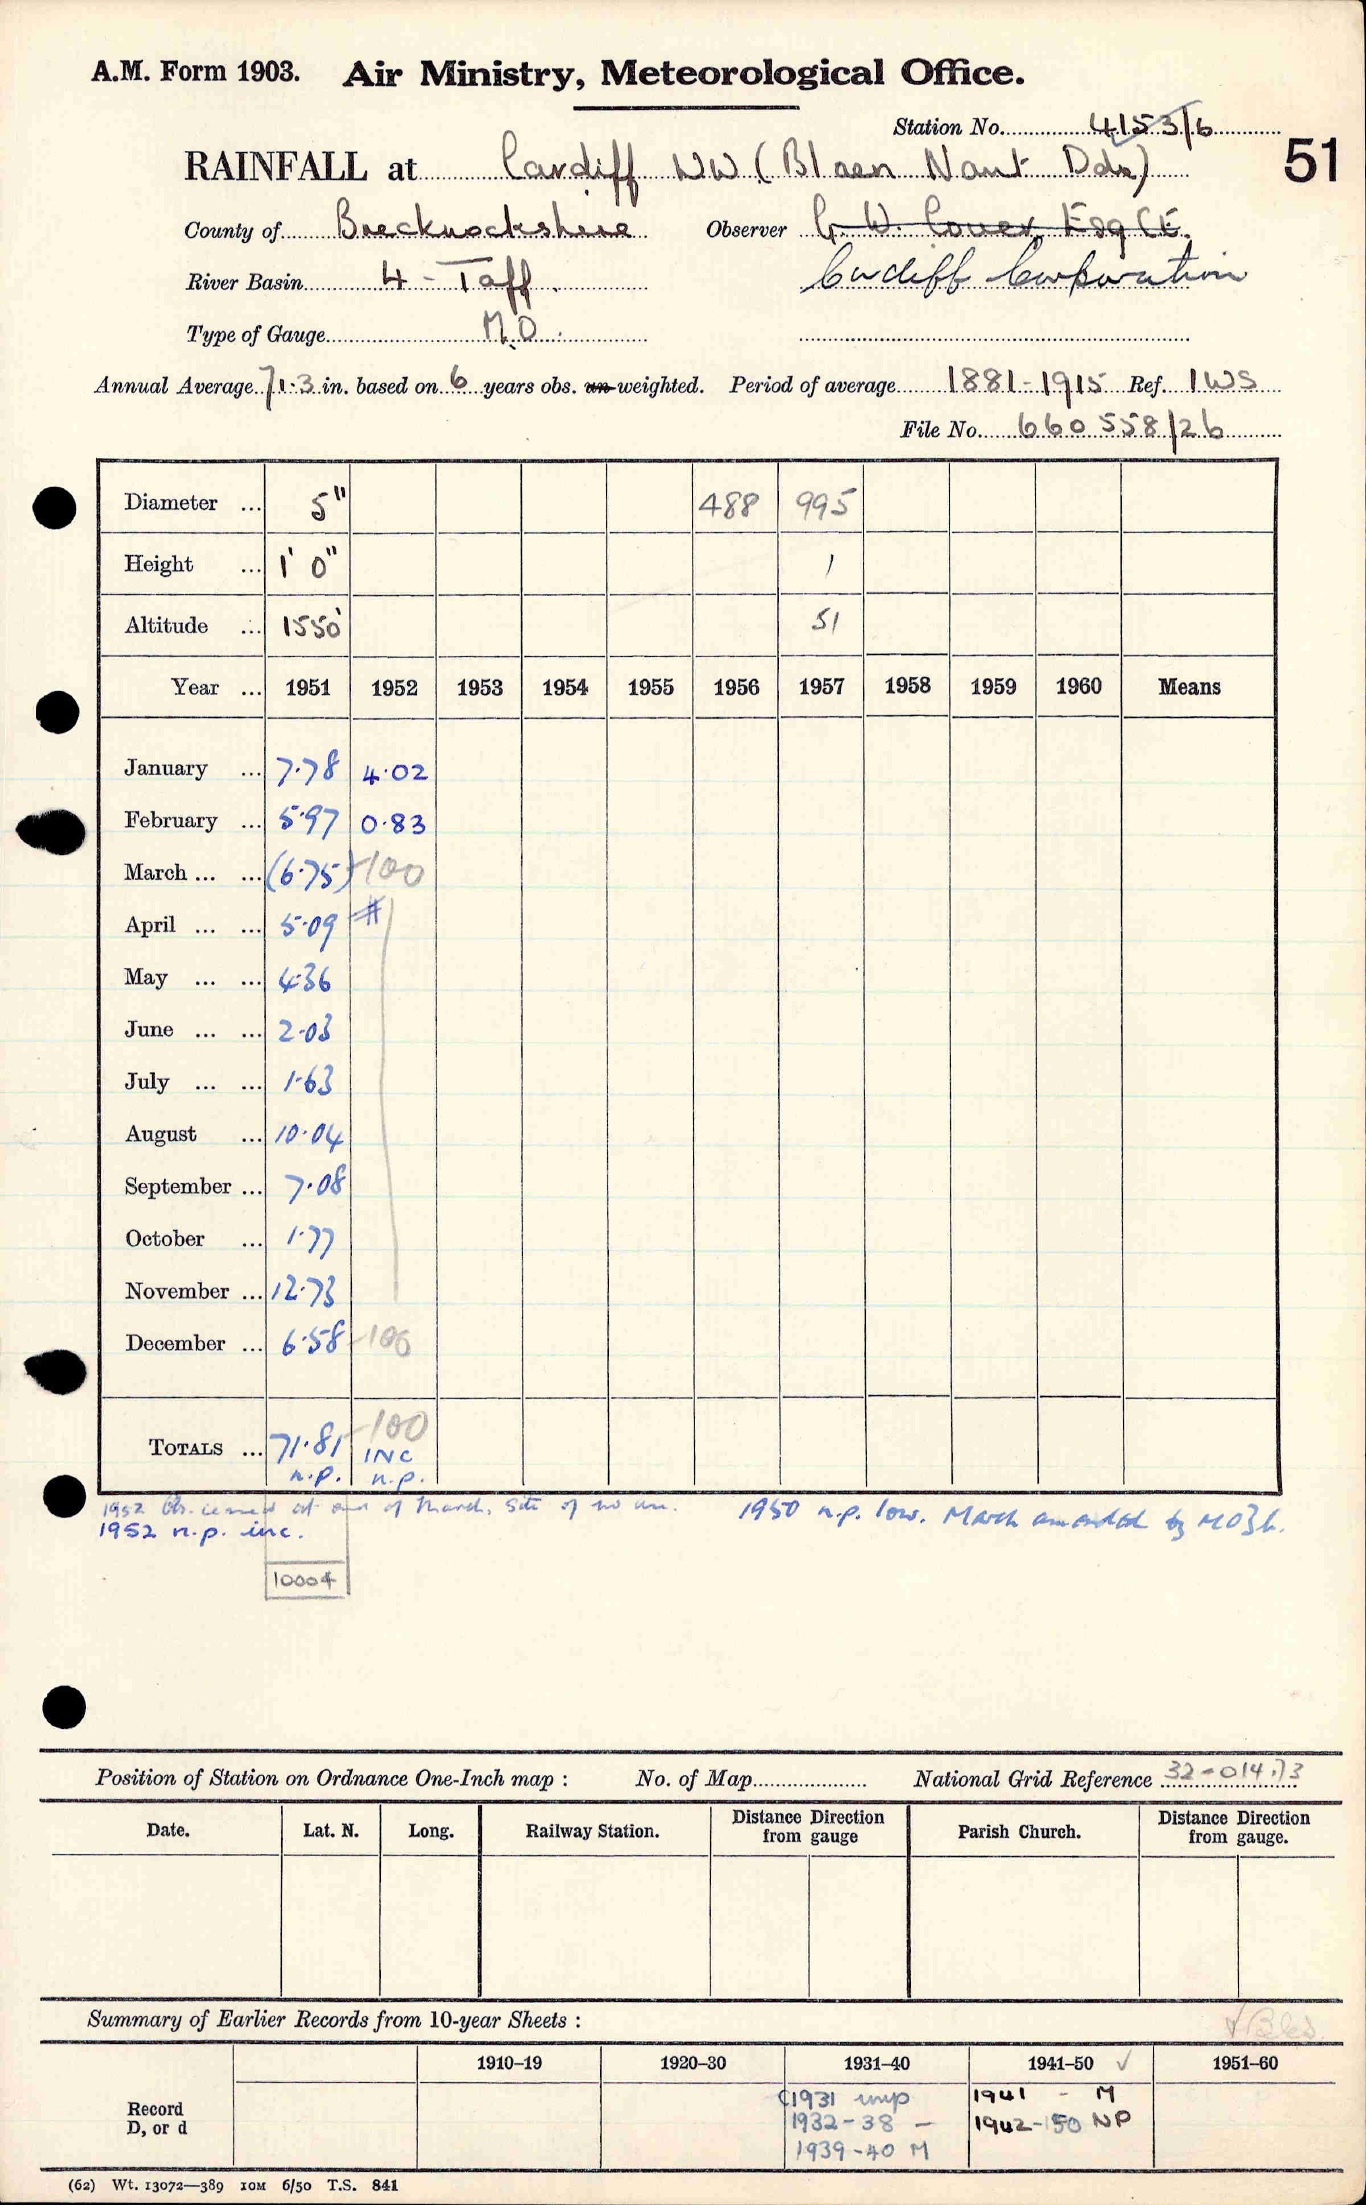 A.M. Form 1903. Air Ministry, Meteorological Office.
Station No. 4153/6
51
RAINFALL at Cardiff WW (Blaen Nant Ddu)
County of Brecknockshire Observer G. W. Esq CE.
River Basin 4 - Taff. Cardiff Corporation
Type of Gauge M.O.
Annual Average 71.3 in. based on 6 years obs. un-weighted. Period of average 1881-1915 Ref. IWS
File No. 660558/26
Diameter ... 5" 488 995
Height ... 1' 0" 1
Altitude ... 1550' 51
Year ... 1951 1952 1953 1954 1955 1956 1957 1958 1959 1960 Means
January ... 7.78 4.02
February ... 5.97 0.83
March ... ... (6.75) -100
April ... ... 5.09 #
May ... ... 4.36
June ... ... 2.03
July ... ... 1.63
August ... 10.04
September ... 7.08
October ... 1.77
November ... 12.73
December ... 6.58 -100
TOTALS ... 71.81 -100
INC
n.p. n.p.
1952 Obs. ceased at end of March. Site of no use. 1950 n.p. low. March amended by MO3b.
1952 n.p. inc.
10004
Position of Station on Ordnance One-Inch map : No. of Map National Grid Reference 32-014.13
Date. Lat. N. Long. Railway Station. Distance Direction from gauge Parish Church. Distance Direction from gauge.
Summary of Earlier Records from 10-year Sheets :
1910-19 1920-30 1931-40 1941-50 ✓ 1951-60
Record D, or d
(1931 imp 1941 - M
1932-38 - 1942-50 NP
1939-40 M
(62) Wt. 13072—389 10M 6/50 T.S. 841